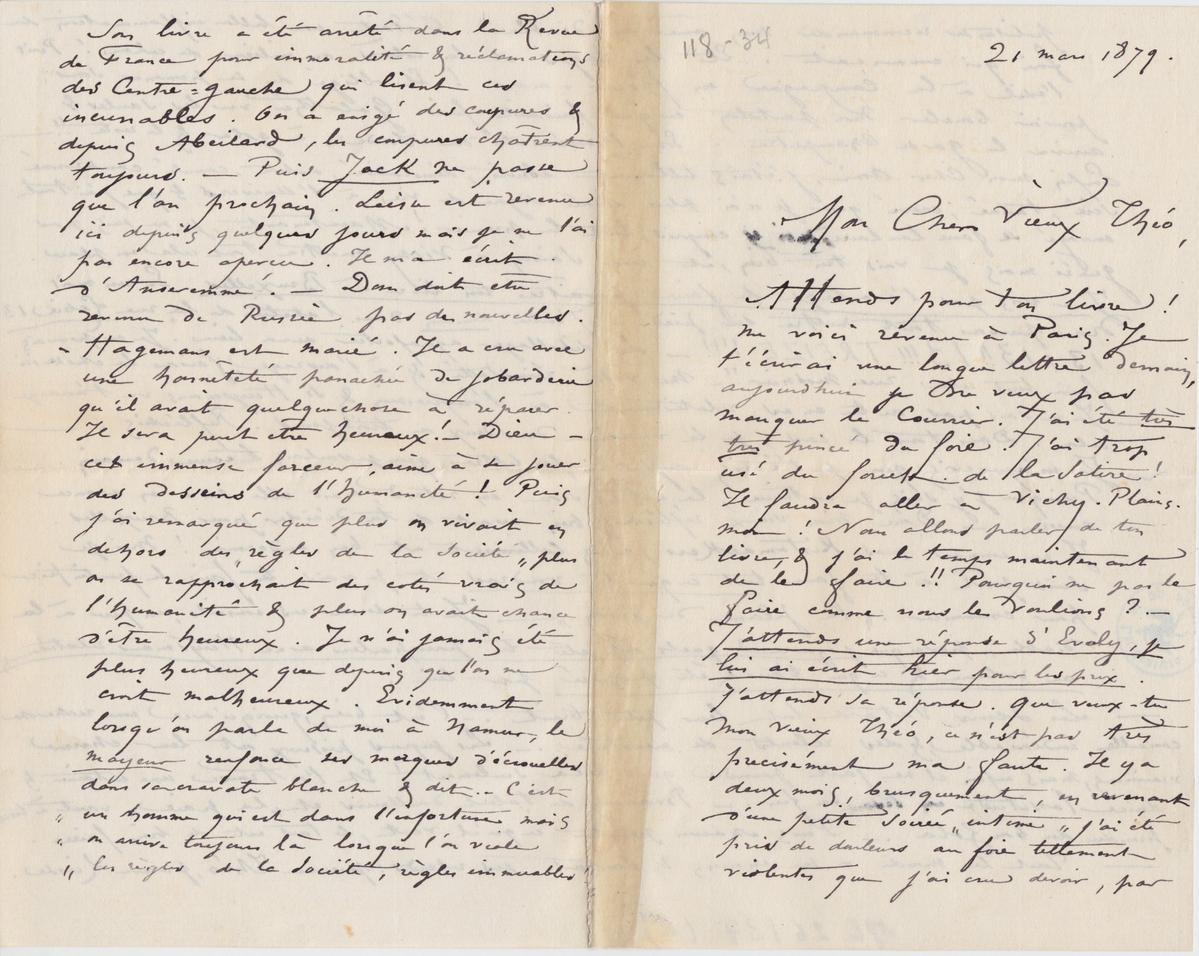 118-34
21 mars 1879.
Mon Cher Vieux Théo,
Attends pour ton livre !
me voici revenu à Paris. Je
t'écrirai une longue lettre demain,
aujourdhui je ne veux pas
manquer le Courrier. J'ai été très
très pincé du foie. J'ai trop
usé du fouet de la Satire !
Il faudra aller à Vichy. Plains-
moi ! Nous allons parler de ton
livre, & j'ai le temps maintenant
de le faire !! Pourquoi ne pas le
faire comme nous le voulions ? —
J'attends une réponse d'Evely, je
lui ai écrit hier pour les prix.
J'attends sa réponse. Que veux-tu
mon vieux Théo, ce n'est pas très
précisément ma faute. Il y a
deux mois, brusquement, en revenant
d'une petite soirée „intime„ j'ai été
pris de douleurs au foie tellement
violentes que j'ai cru devoir, par
Son livre a été arrêté dans la Revue
de France pour immoralité & réclamations
des Centre=gauche qui lisent ces
incunables. On a exigé des coupures &
depuis Abeilard, les coupures châtrent
toujours. — Puis Jack ne passe
que l'an prochain. Liesse est revenu
ici depuis quelques jours mais je ne l'ai
pas encore aperçu. Il m'a écrit
d'Anseremme. — Dom doit être
revenu de Russie pas de nouvelles.
– Hagemans est marié. Il a cru avec
une honnêteté panachée de jobarderie
qu'il avait quelque chose à réparer.
Il sera peut être heureux ! – Dieu –
cet immense farceur, aime à se jouer
des desseins de l'humanité ! Puis
j'ai remarqué que plus on vivait en
dehors des règles de la Société „ plus
on se rapprochait des cotés vrais de
l'humanité & plus on avait chance
d'être heureux. Je n'ai jamais été
plus heureux que depuis qu'l'on me
croit malheureux. Evidemment
lorsqu'on parle de moi à Namur, le
mayeur renfonce ses marques d'écrouelles
dans sa cravate blanche & dit.. C'est
„ un homme qui est dans l'infortune mais
„ on arrive toujours là lorsque l'on viole
„ les règles de la Société, règles immuables